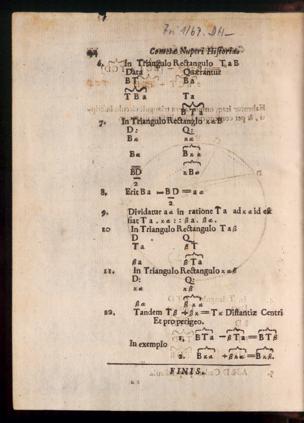 44 Cometæ Nuperi Historia.
6. In Triangulo Rectangulo TaB
Data Quærantur
BT Ba
TBa Ta
BTa
7. In Triangulo Rectanglo xaB
D: Q:
Ba xa
Ba Bxa
BD xBa
2
8. Erit Ba — BD = aa
2
9. Dividatur aa in ratione Ta ad xa id est
fiat Ta . xa :: βa . βa.
10 In Triangulo Rectangulo Taβ
D Q
Ta βT
βa βTa
11. In Triangulo Rectangulo xaβ
D: Q:
xa xβ
βa βxa
12. Tandem Tβ + βx = Tx Distantiæ Centri
Et pro perigeo.
1. BTa — βTa = BTβ
In exemplo
2. Bxa + βxa = Bxβ.
FINIS.